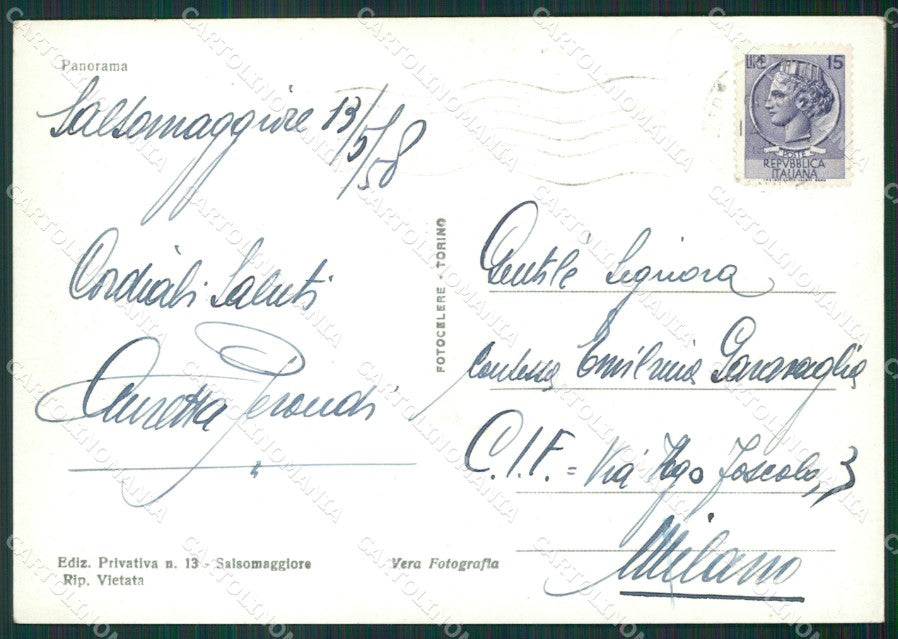 Panorama
Salsomaggiore 13/5/58
Cordiali Saluti
FOTOCELERE - TORINO
LIRE 15
POSTE
REPVBBLICA
ITALIANA
Gentile Signora
Contessa Emilnia Garavaglia
C.I.F. = Via Ugo Foscolo, 3
Milano
Ediz. Privativa n. 13 - Salsomaggiore
Rip. Vietata
Vera Fotografia
CARTOLINOMANIA